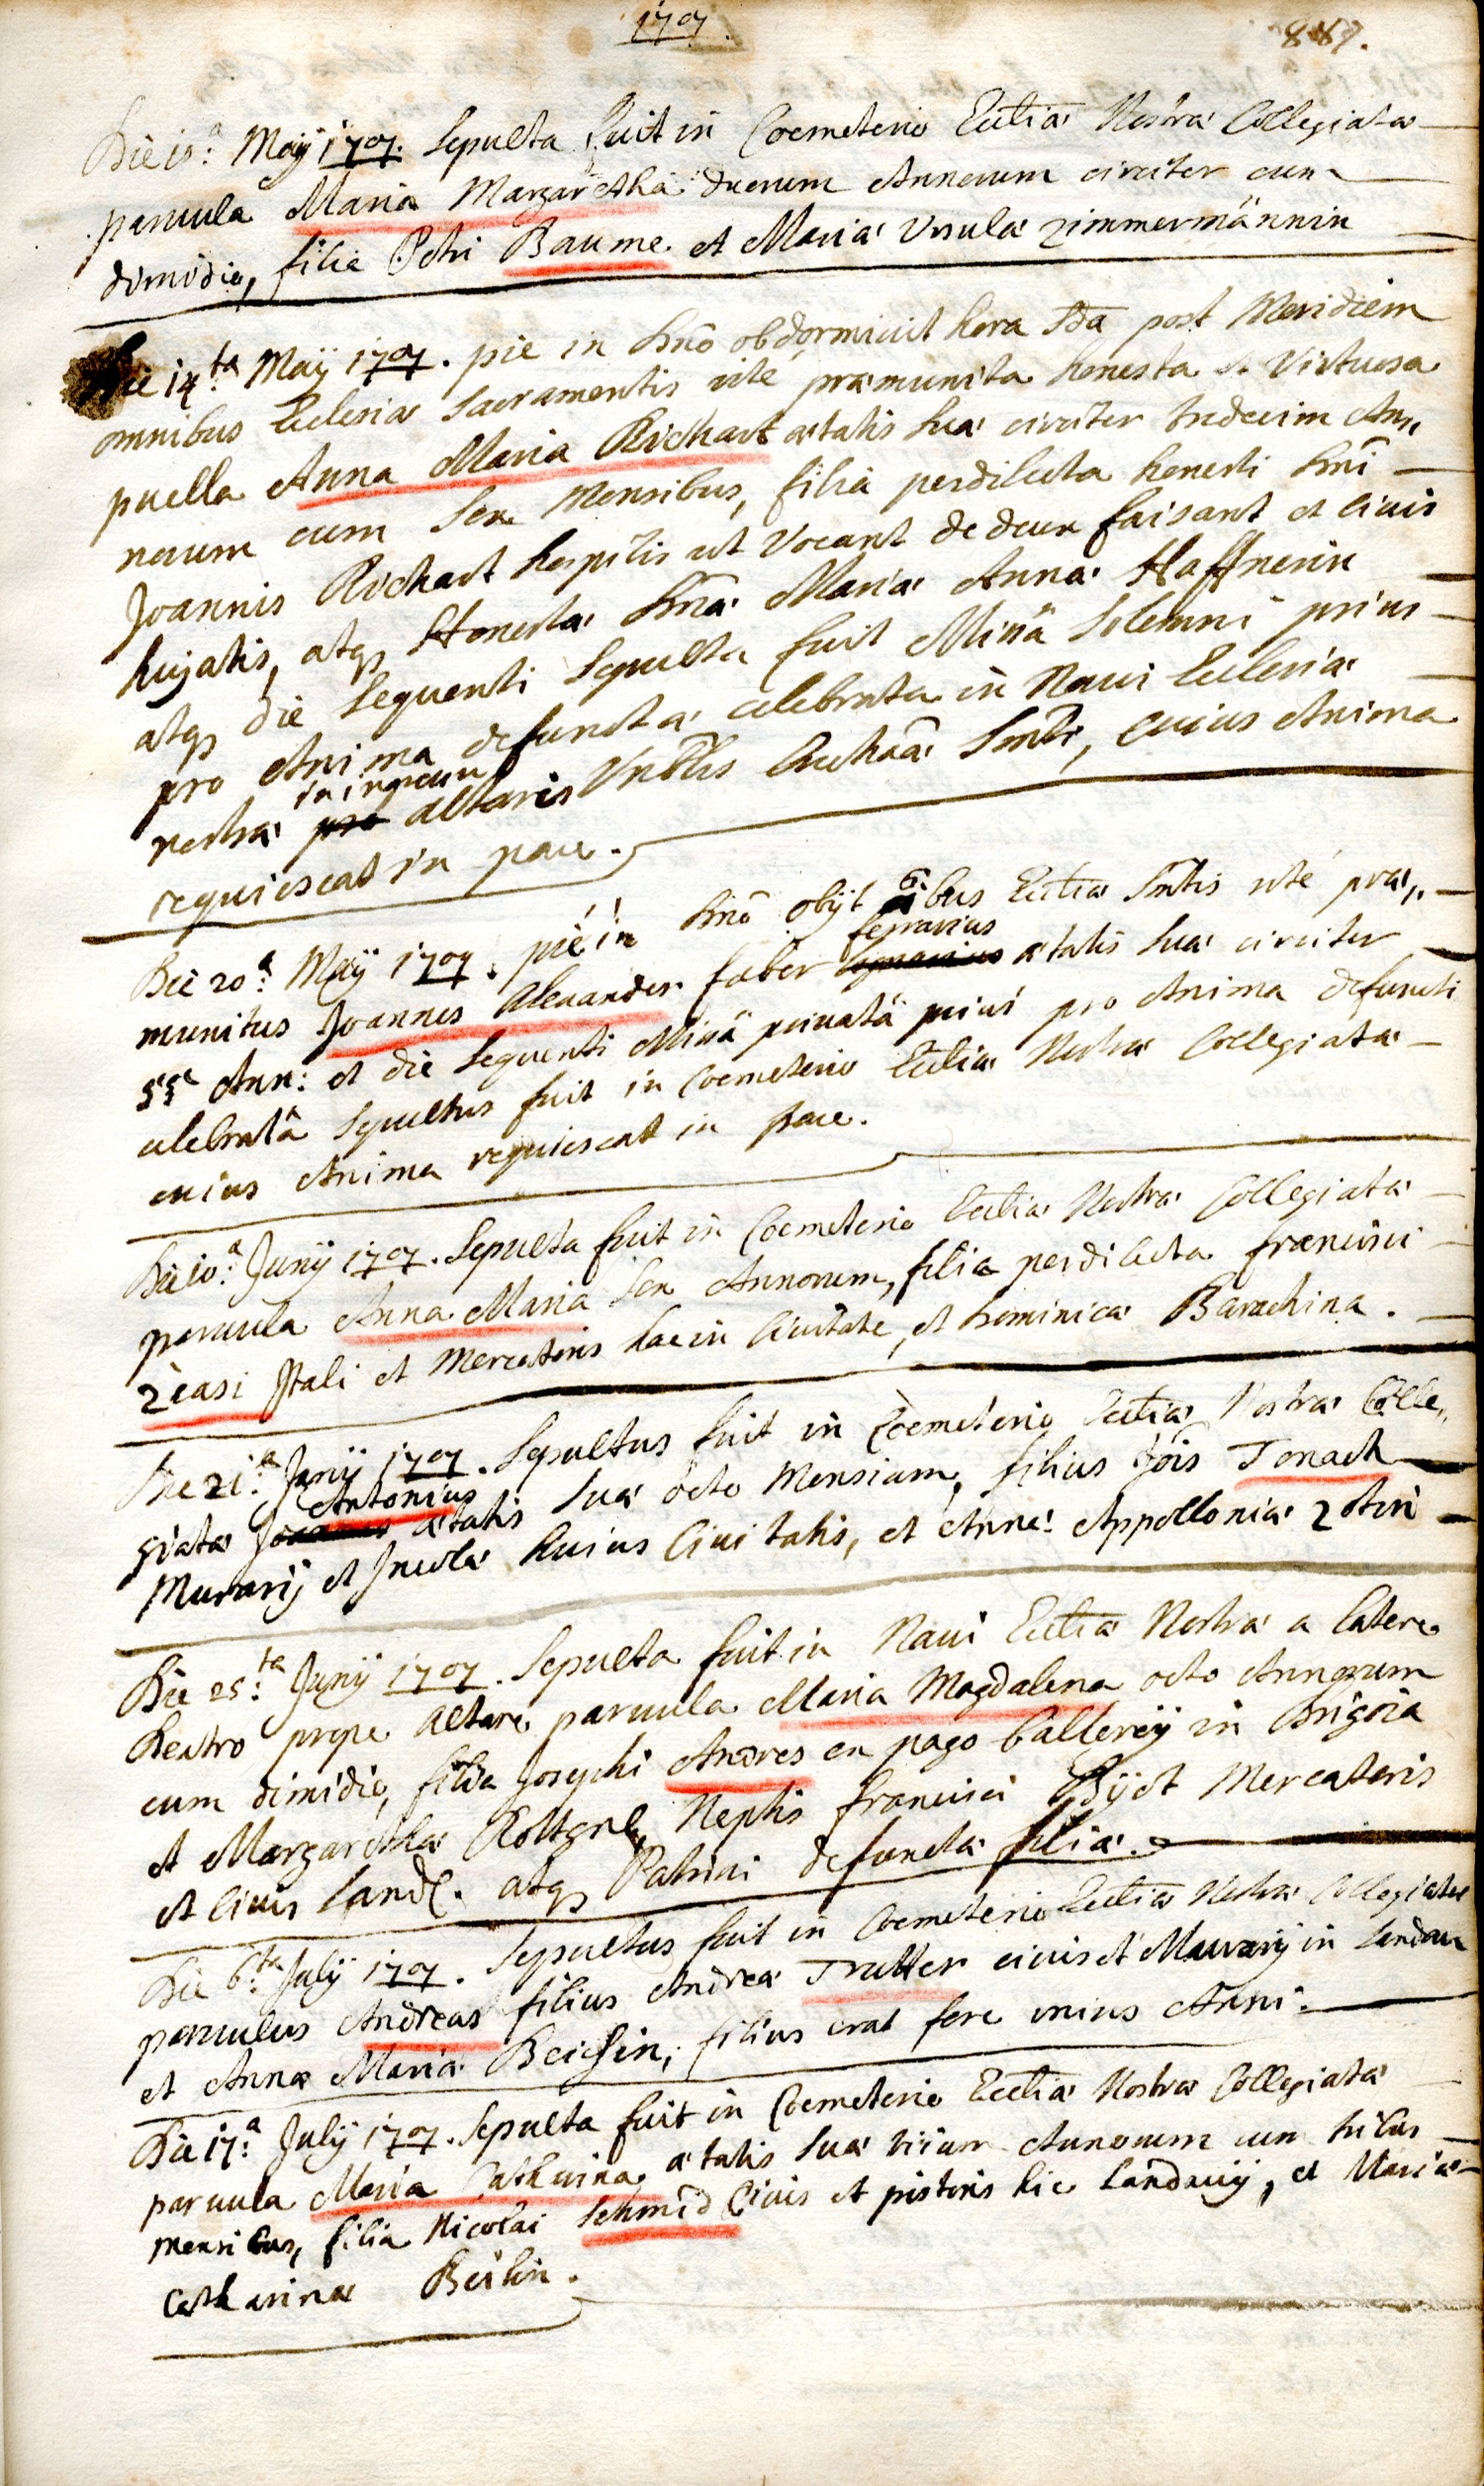 1707.
887.
Die 10.a Maÿ 1707. Sepulta fuit in Coemeterio Ecclīæ Nostræ Collegiatæ
paruula Maria Margaretha duorum Annorum circiter cum
dimidio, filia Petri Baume et Mariæ Vrsulæ Zimmermännin
Die 14ta Maÿ 1707. pie in Dnō obdormiuit hora 2da post Meridiem
omnibus Ecclesiæ Sacramentis rite præmunita honesta et Virtuosa
puella Anna Maria Richart ætatis suæ circiter tredecim An„
norum cum sex Mensibus, filia perdilecta honesti Dni
Joannis Richart hospitis ut Vocant de deux faisant et Ciuis
hujatis, atq, Honestæ Dnæ Mariæ Annæ Haffnerin
atq, die sequenti Sepulta fuit Missâ Solemni prius
pro Anima defunctæ celebrata in Naui Ecclesiæ
nostræ pro altaris Vnblis Sm̄ti, cuius Anima
requiescat in pace.
Die 20.a Maÿ 1707. pie in Dnō obÿt oibus Ecctiæ Smtis rite præ„
ferrarius
munitus Joannes Alexander faber lignarius ætatis suæ circiter
55 Ann: et die sequenti Missâ priuatâ prius pro Anima defuncti
celebratâ Sepultus fuit in Coemeterio Ecctiæ Nostræ Collegiatæ
cuius Anima requiescat in pace.
Die 10.a Junÿ 1707. Sepulta fuit in Coemeterio Ecctiæ Nostræ Collegiatæ
paruula Anna Maria sex Annorum, filia perdilecta francisci
Zèasi Itali et Mercatoris hac in Ciuitate, et Dominicæ Barachina.
Die 21.a Junÿ 1707. Sepultus fuit in Coemeterio Ecctiæ Nostræ Colle„
Antonius
giatæ Joannes ætatis suæ octo Mensium, filius Jois Tonach
Murarÿ et Incolæ huius Ciuitatis, et Annæ Appolloniæ
Die 25.ta Junÿ 1707. Sepulta fuit in Naui Ecctiæ Nostræ a latere
Dextro prope Altare paruula Maria Magdalena octo Annorum
cum dimidio, filia Josephi Andres ex pago in
et Margarethæ Neptis francisci Bÿet Mercatoris
et Ciuis Land. atq, Patrini defunctæ filiæ.
Die 6.ta Julÿ 1707. Sepultus fuit in Coemeterio Ecctiæ Nostræ Collegiatæ
paruulus Andreas filius Andreæ Trutter ciuis et Murarÿ in Landau
et Annæ Mariæ filius erat fere unius Anni.
Die 17.a Julÿ 1707. Sepulta fuit in Coemeterio Ecctiæ Nostræ Collegiatæ
paruula Maria Catharina ætatis suæ Annorum cum tribus
mensibus, filia Nicolai Schmid Ciuis et pistoris hic Landauÿ, et Mariæ
Catharinæ